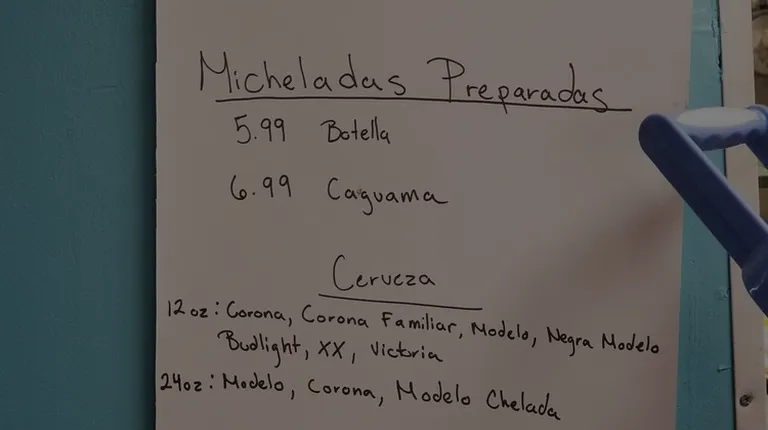 Micheladas Preparadas
5.99 Botella
6.99 Caguama
Cerveza
12oz: Corona, Corona Familiar, Modelo, Negra Modelo
Budlight, XX, Victoria
24oz: Modelo, Corona, Modelo Chelada